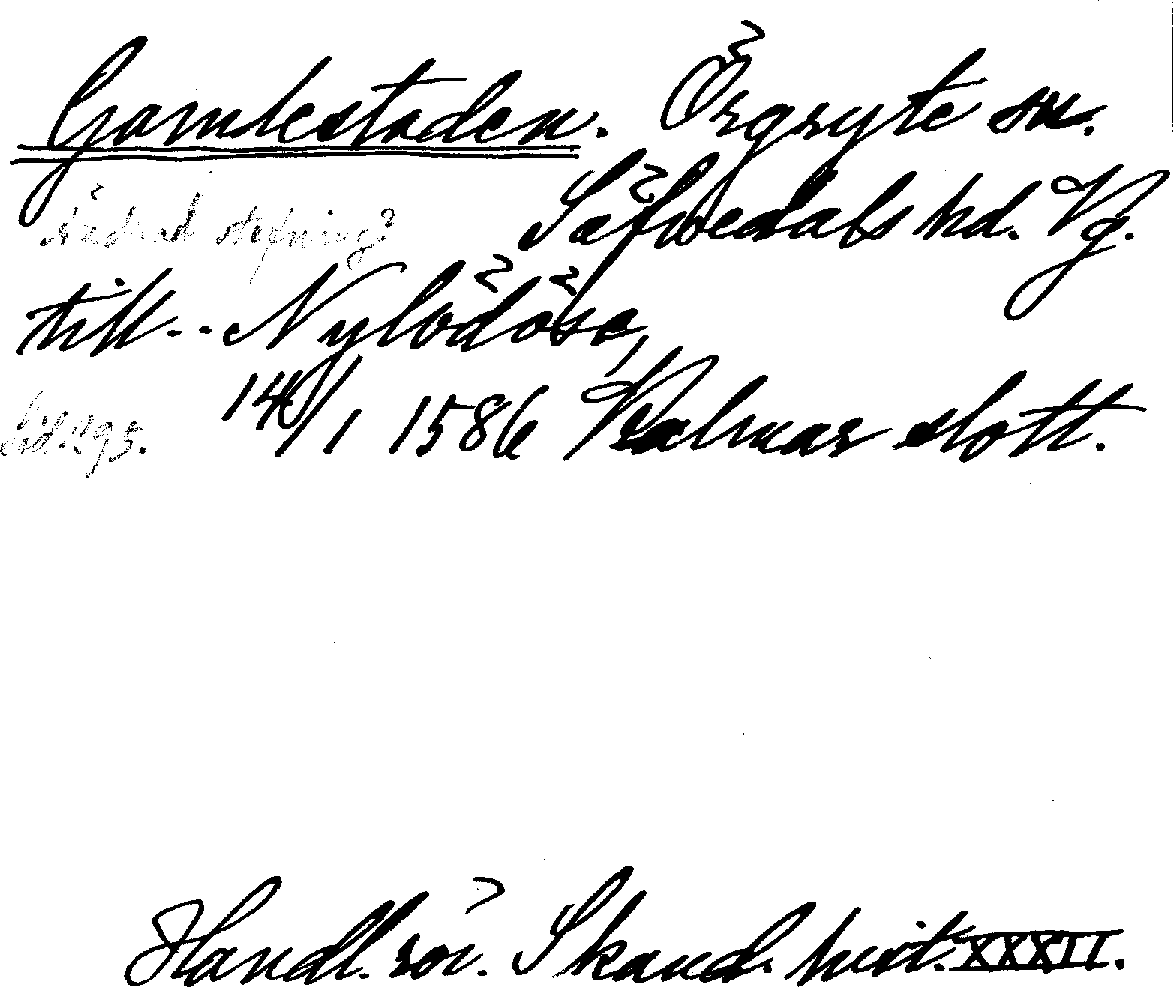 Gamlestaden. Örgryte sn.
Säfvedals hd. Vg.
Ändrad stafning?
till - - Nylödöse,
14/1 1586 Kalmar slott.
sid. 295.
Handl. rör. Skand. hist. XXXII.